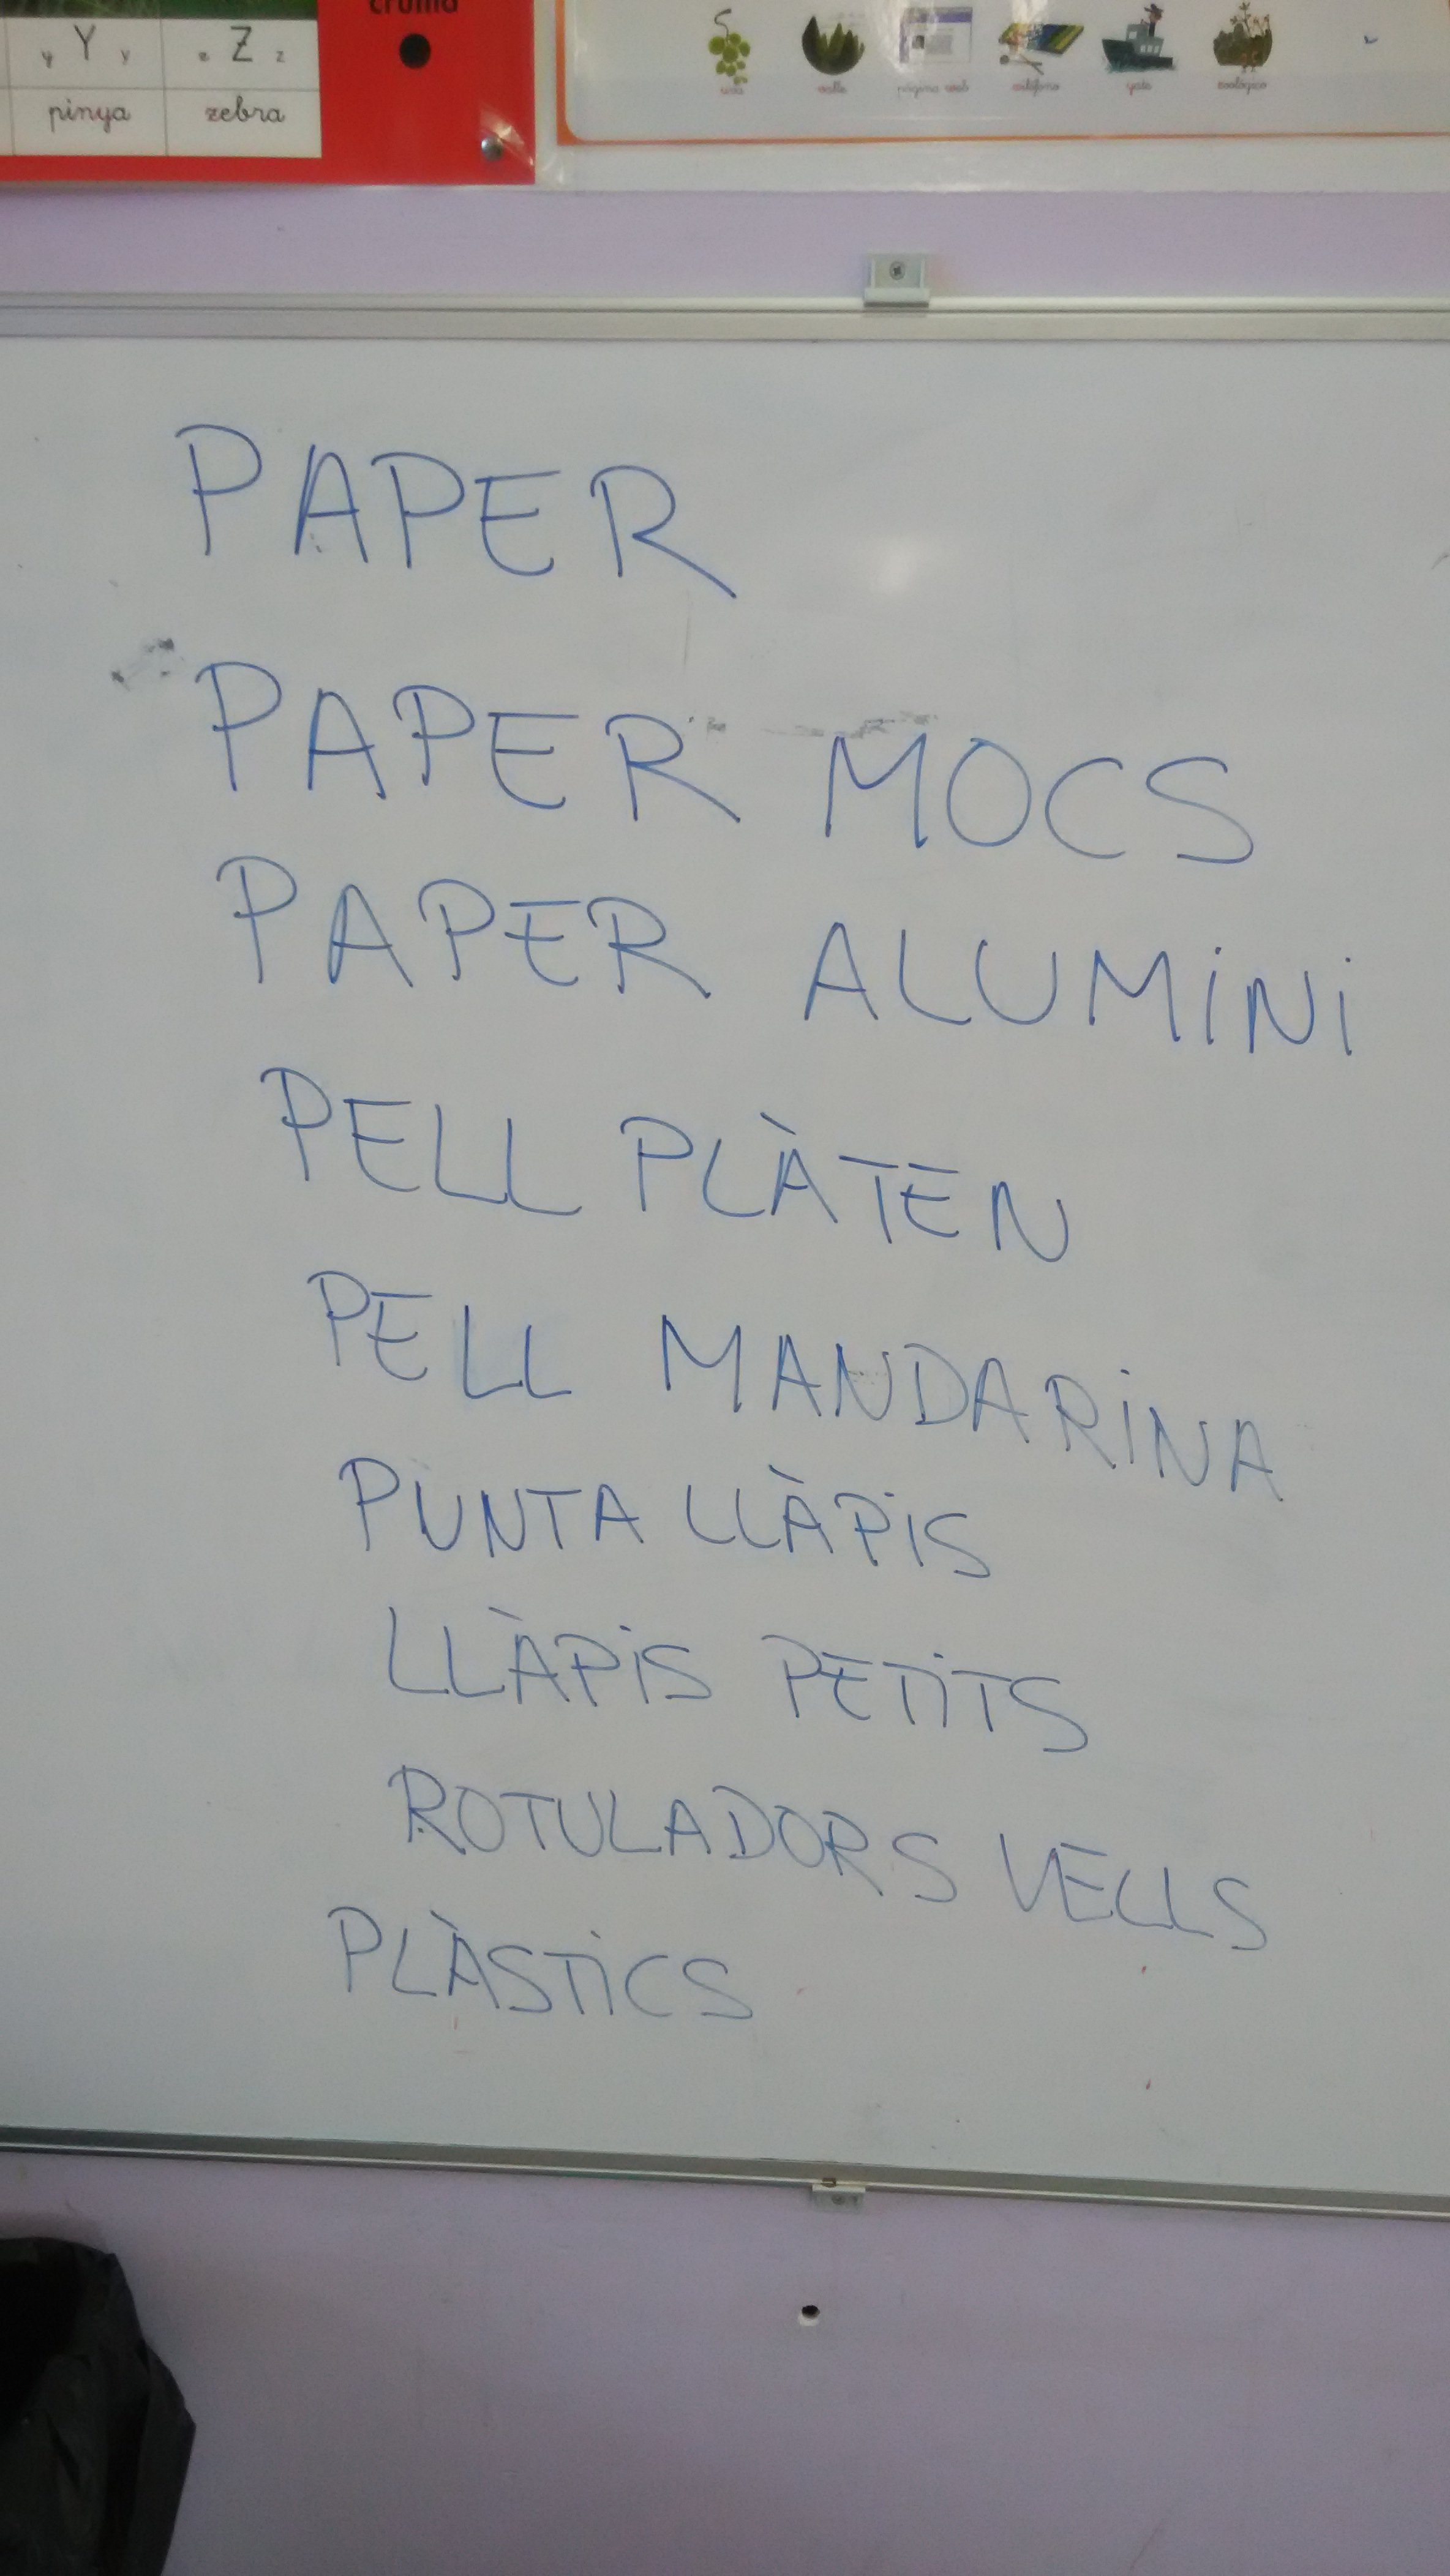 croma
y Y y z Z z
pinya zebra
uva página web xilófono yate zoológico
PAPER
PAPER MOCS
PAPER ALUMINI
PELL PLÀTEN
PELL MANDARINA
PUNTA LLÀPIS
LLÀPIS PETITS
ROTULADORS VELLS
PLÀSTICS